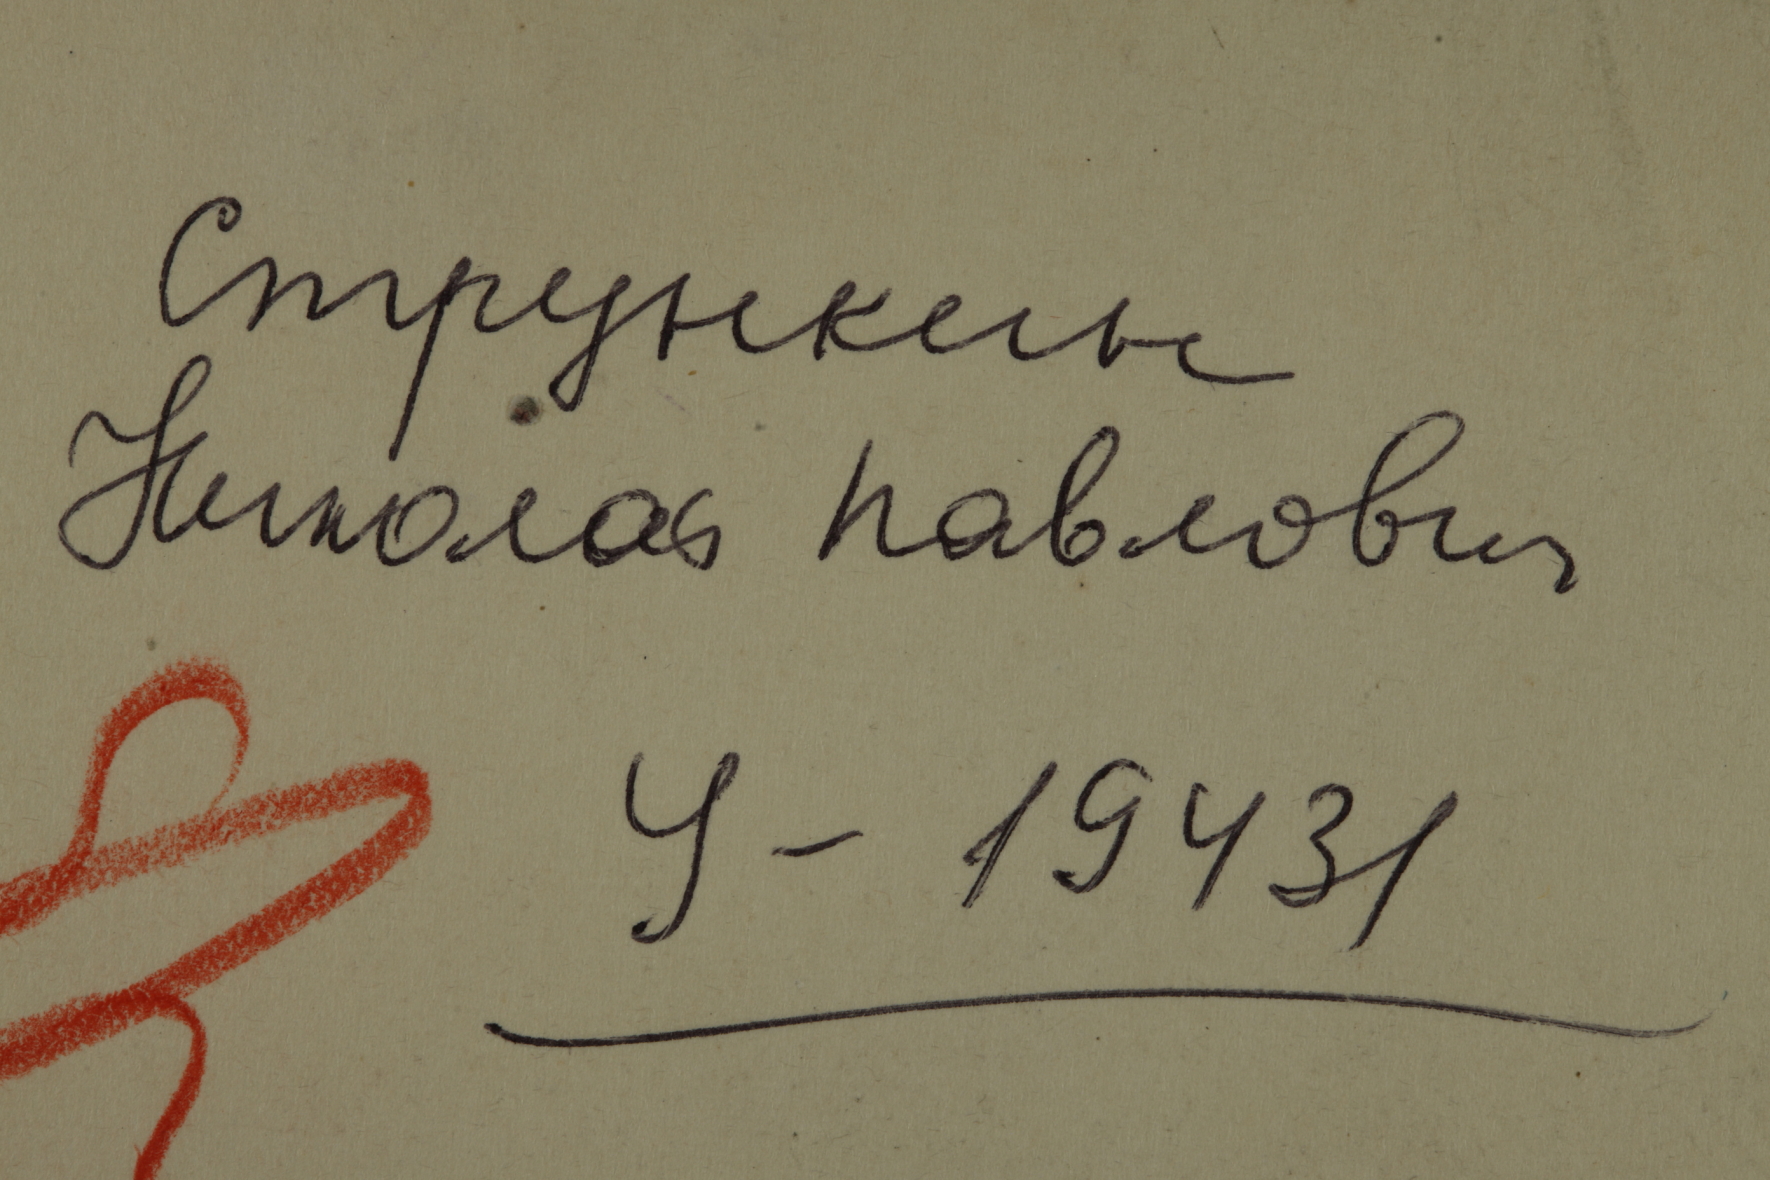 Стрункин
Николай Павлович
У - 19431